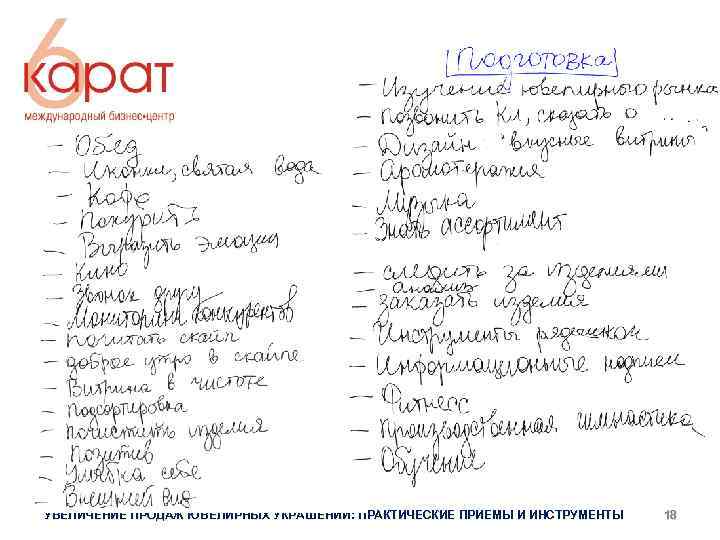 6 карат
международный бизнес•центр
Подготовка
– Обед
– Иконки, святая вода
– Кофе
– Покурить
– Выразить эмоции
– Кино
– Звонок другу
– Мониторинг конкурентов
– почитать скайп
– доброе утро в скайпе
– Витрина в чистоте
– Подсортировка
– почистить изделия
– Позитив
– Улыбка себе
– Внешний вид
– Изучение ювелирного рынка
– Позвонить Кл, сказать о . . . .
– Дизайн "вкусные витрины"
– Аромотерапия
– Музыка
– Знать ассортимент
– следить за изделиями
– анализ
– заказать изделия
– Инструменты рядешком
– Информационные надписи
– Фитнесс
– Производственная гимнастика
– Обучение
УВЕЛИЧЕНИЕ ПРОДАЖ ЮВЕЛИРНЫХ УКРАШЕНИЙ: ПРАКТИЧЕСКИЕ ПРИЕМЫ И ИНСТРУМЕНТЫ
18